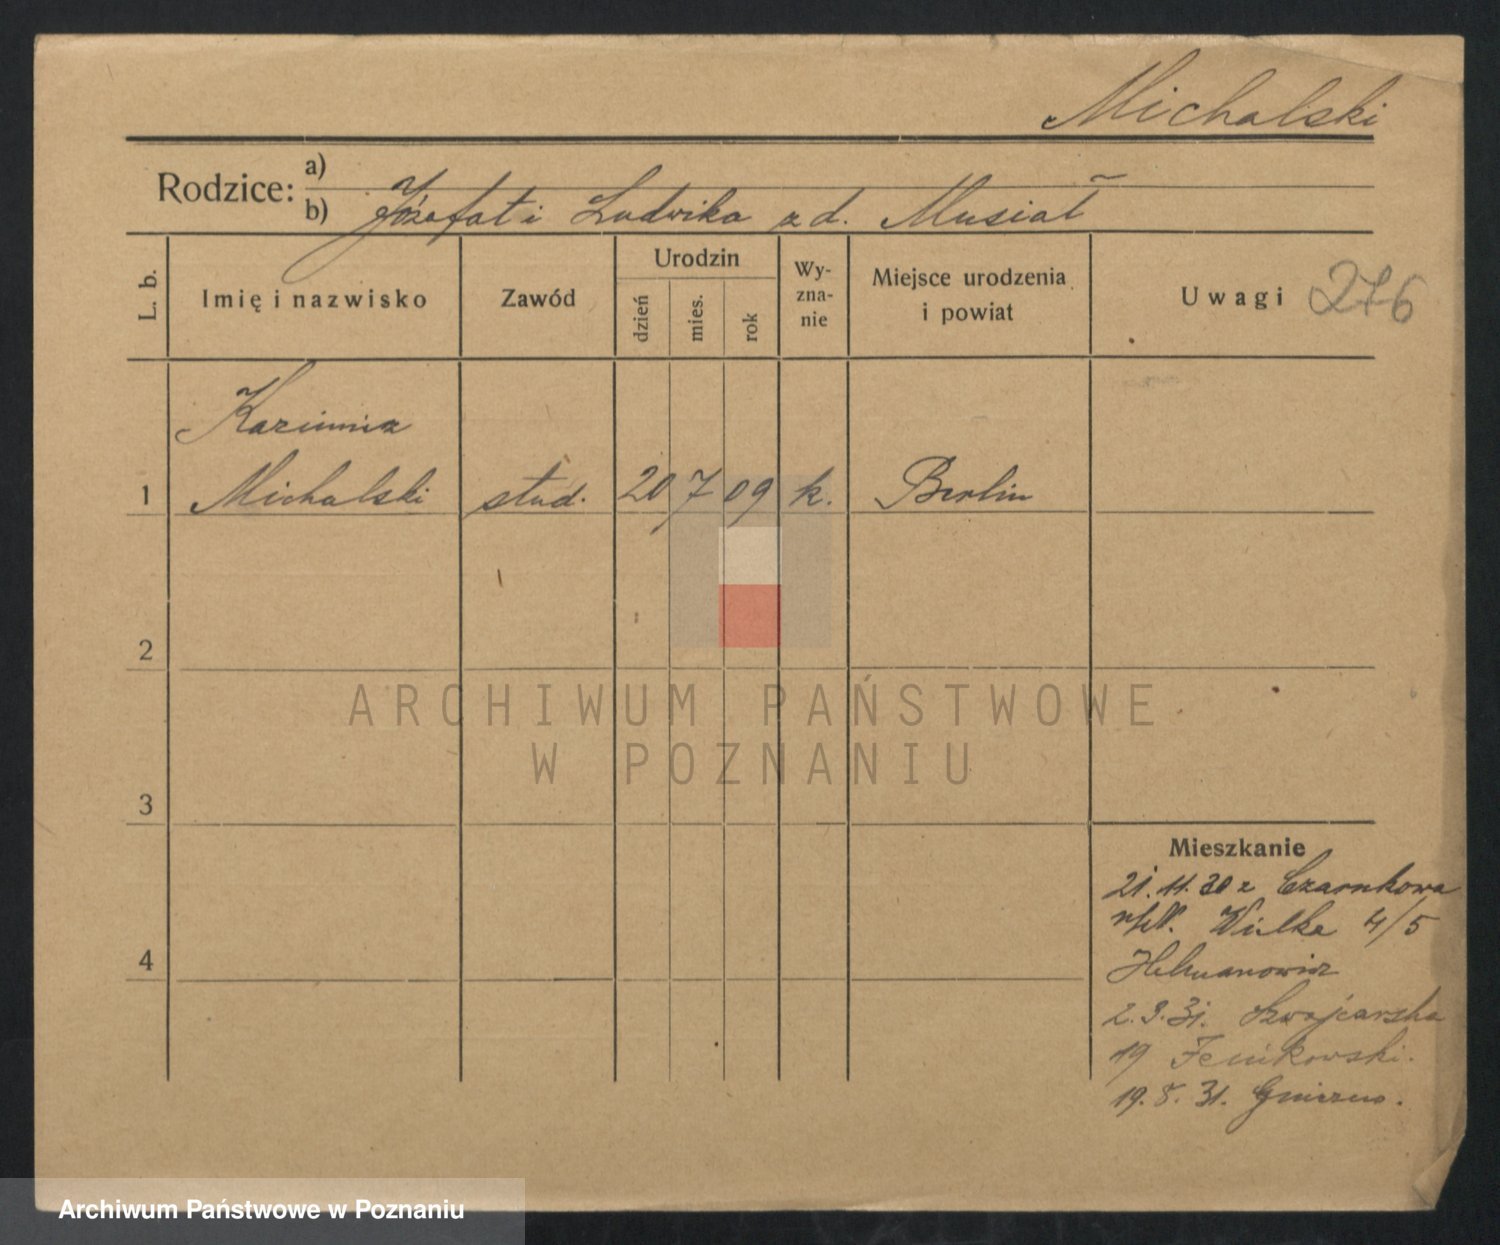 Michalski
Rodzice: a)
b) Józefat i Ludwika z d. Musiał
L. b.
Imię i nazwisko
Zawód
Urodzin
dzień
mies.
rok
Wy-
zna-
nie
Miejsce urodzenia
i powiat
Uwagi 276
Kazimierz
1 Michalski stud. 20 7 09 k. Berlin
2
ARCHIWUM PAŃSTWOWE
W POZNANIU
3
Mieszkanie
21. 11. 30 z Czarnkowa
Wilka 4/5
4
2. 3. 31. Szwajcarska
19 Fenikowski.
19. 8. 31. Gniezno.
Archiwum Państwowe w Poznaniu